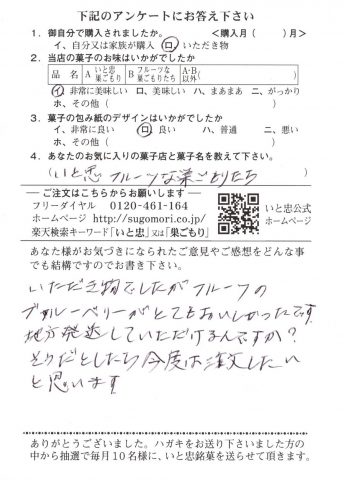 下記のアンケートにお答え下さい
1. 御自分で購入されましたか。 <購入月( )月>
イ、自分又は家族が購入 ロ、いただき物
2. 当店の菓子のお味はいかがでしたか
品 名 A いと忠巣ごもり B フルーツな巣ごもりたち A・B以外( )
イ、非常に美味しい ロ、美味しい ハ、まあまあ ニ、がっかり
ホ、その他( )
3. 菓子の包み紙のデザインはいかがでしたか
イ、非常に良い ロ、良い ハ、普通 ニ、悪い
ホ、その他( )
4. あなたのお気に入りの菓子店と菓子名を教えて下さい。
(いと忠 フルーツな巣ごもりたち )
―ご注文はこちらからお願いします―
フリーダイヤル 0120-461-164
ホームページ http://sugomori.co.jp/
楽天検索キーワード「いと忠」又は「巣ごもり」
いと忠公式
ホームページ
あなた様がお気づきになられたご意見やご感想をどんな事
でも結構ですのでお書き下さい。
いただき物でしたがフルーツの
ブルーベリーがとてもおいしかったです
地方発送していただけるんですか?
そうだとしたら今度は注文したい
と思います
ありがとうございました。ハガキをお送り下さいました方の
中から抽選で毎月10名様に、いと忠銘菓を送らせて頂きます。